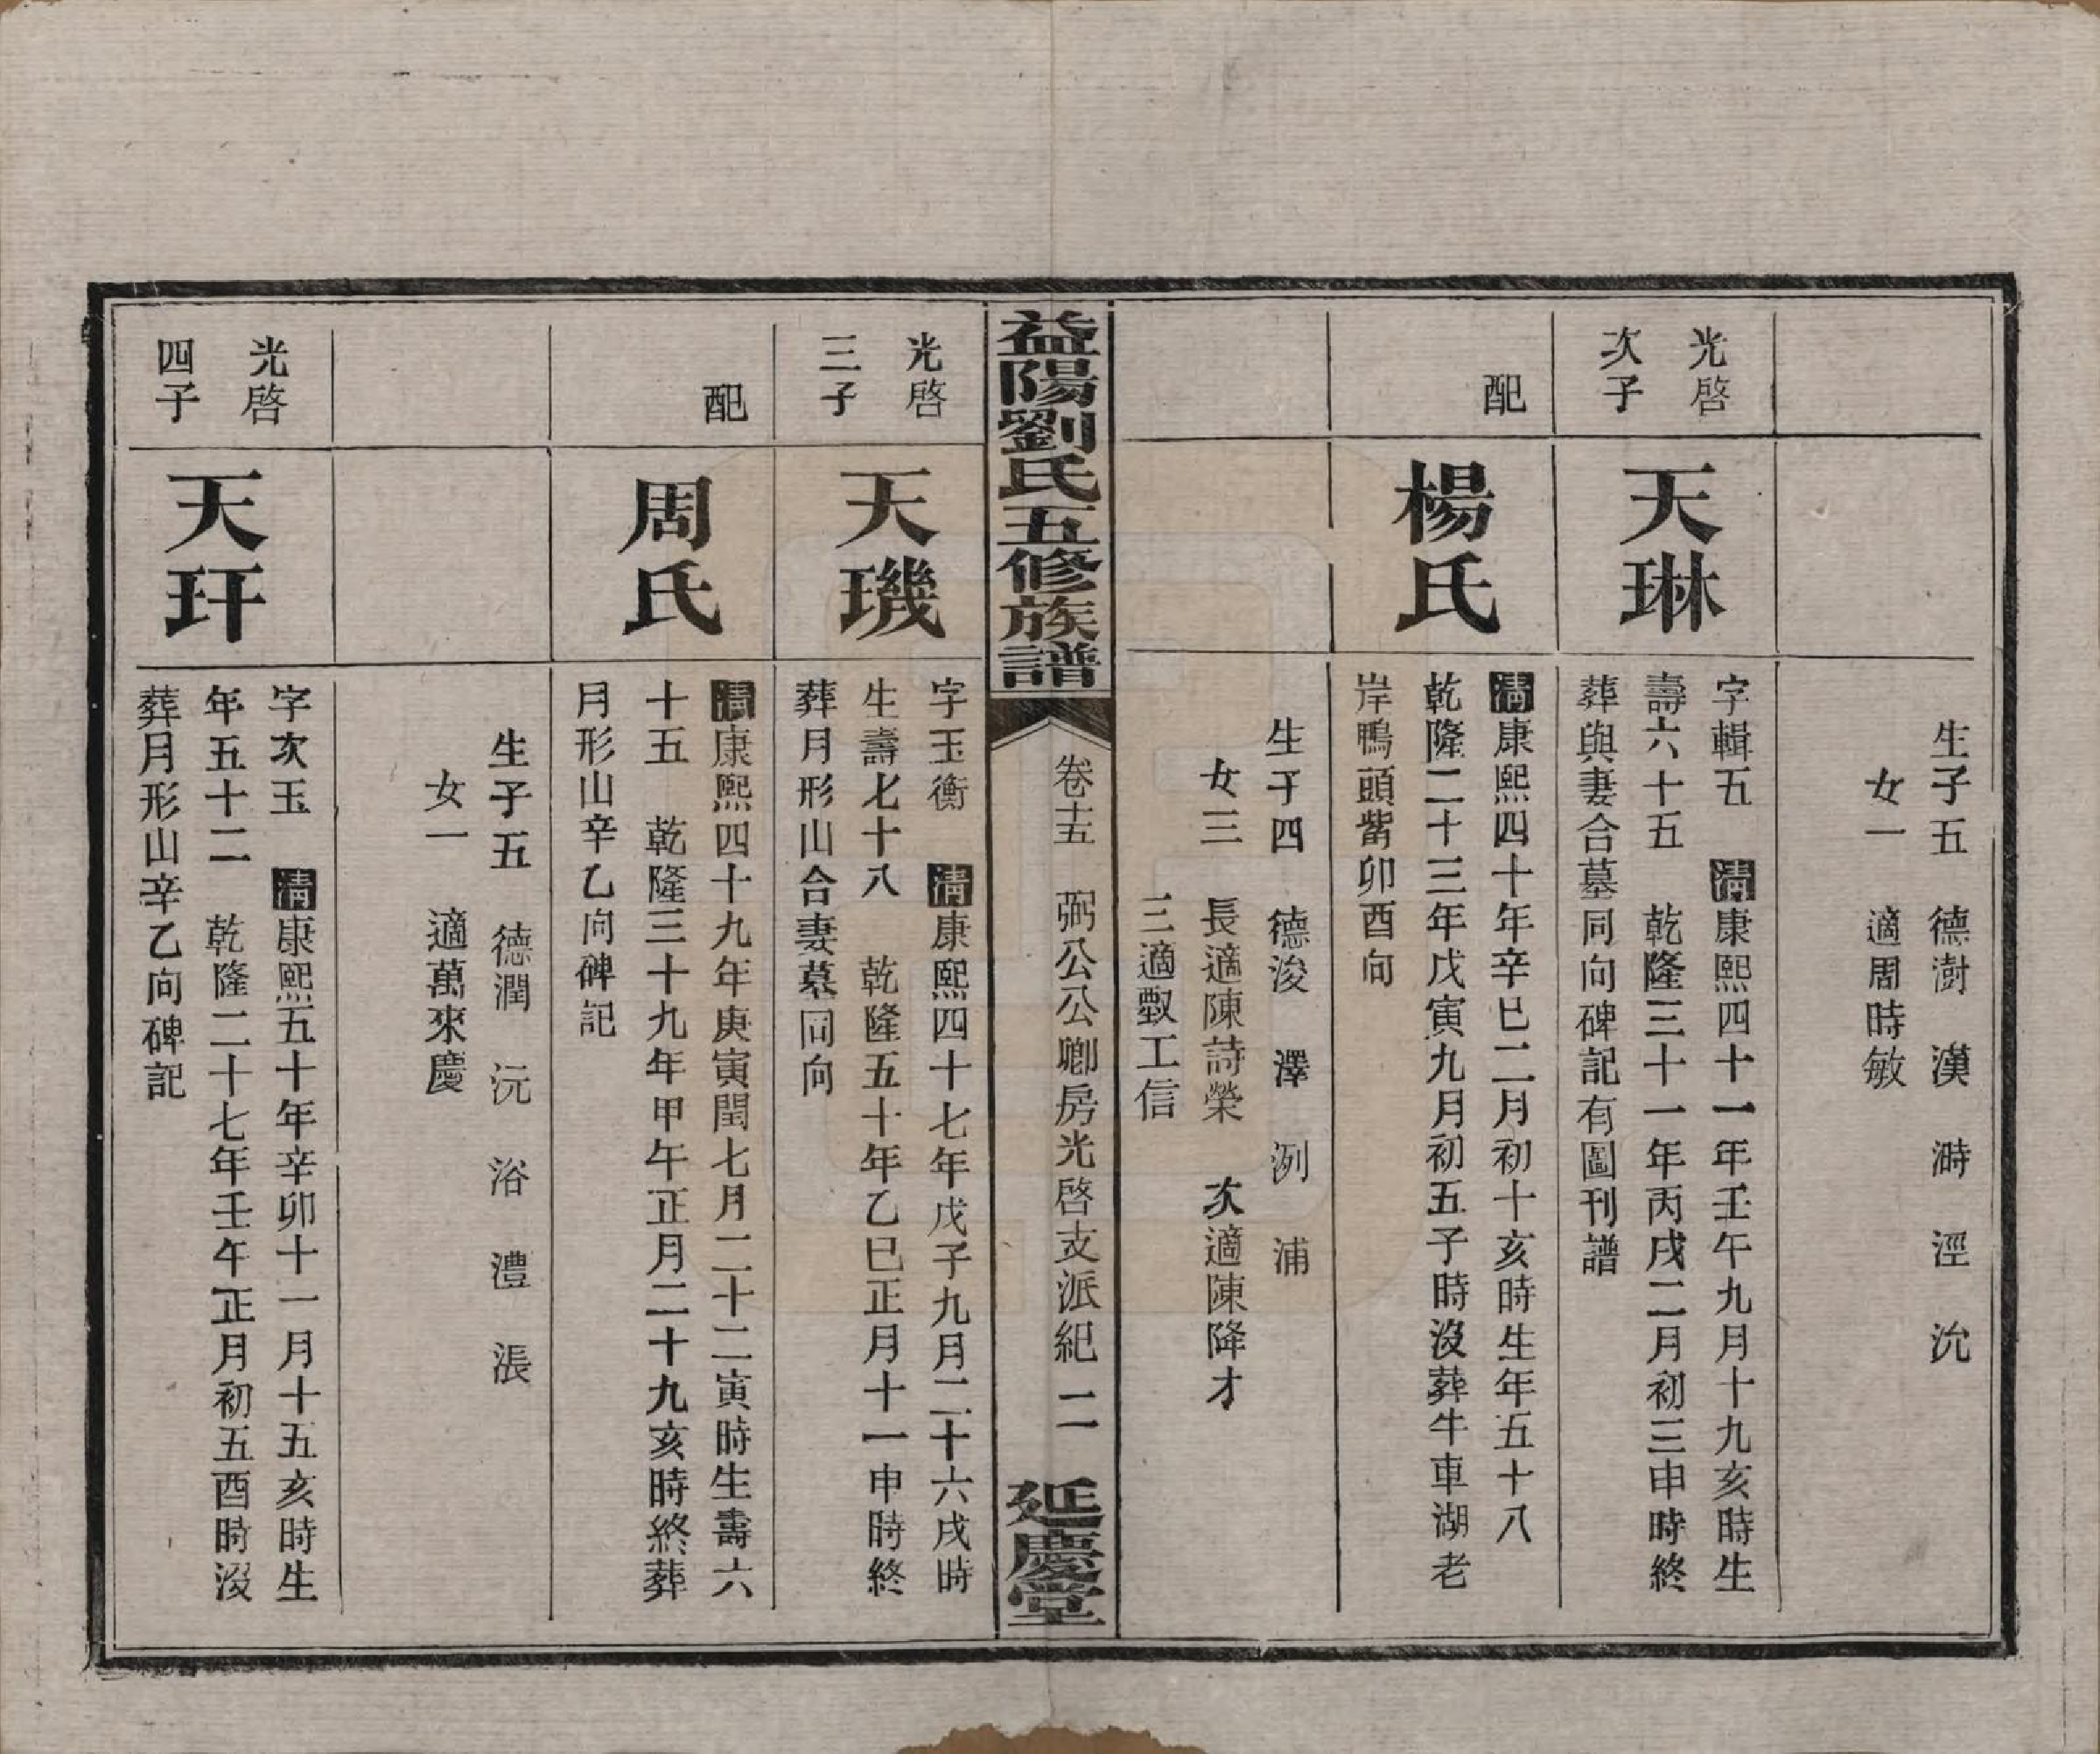 生子五　德澍　漢　溡　涇　沇
女一　適周時敏
光啓
次子
天琳
字輯五　清康熙四十一年壬午九月十九亥時生
壽六十五　乾隆三十一年丙戌二月初三申時終
葬與妻合墓同向碑記有圖刊譜
配
楊氏
清康熙四十年辛巳二月初十亥時生年五十八
乾隆二十三年戊寅九月初五子時沒葬牛車湖老
岸鴨頭觜卯酉向
生子四　德浚　澤　洌　浦
女三　長適陳詩榮　次適陳降才
三適工信
益陽劉氏五修族譜
卷十五　弼公公卿房光啓支派紀　二
延慶堂
光啓
三子
天璣
字玉衡　清康熙四十七年戊子九月二十六戌時
生壽七十八　乾隆五十年乙巳正月十一申時終
葬月形山合妻墓同向
配
周氏
清康熙四十九年庚寅閏七月二十二寅時生壽六
十五　乾隆三十九年甲午正月二十九亥時終葬
月形山辛乙向碑記
生子五　德潤　沅　浴　澧　漲
女一　適萬來慶
光啓
四子
天玕
字次玉　清康熙五十年辛卯十一月十五亥時生
年五十二　乾隆二十七年壬午正月初五酉時沒
葬月形山辛乙向碑記